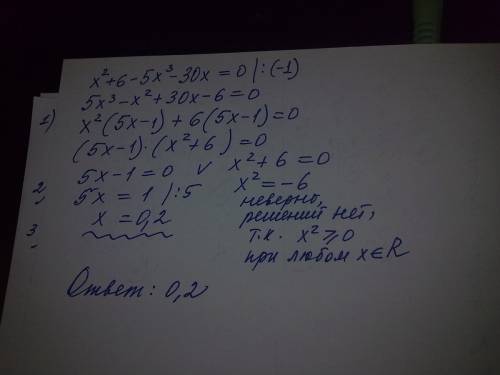 x² + 6 - 5x³ - 30x = 0 |:(-1)
5x³ - x² + 30x - 6 = 0
1) x²(5x-1) + 6(5x-1) = 0
(5x-1)·(x²+6) = 0
5x-1 = 0 ∨ x²+6 = 0
2, 5x = 1 |:5 x² = -6
неверно,
3 x = 0,2 решений нет,
т.к. x² ⩾ 0
при любом x∈R
Ответ: 0,2